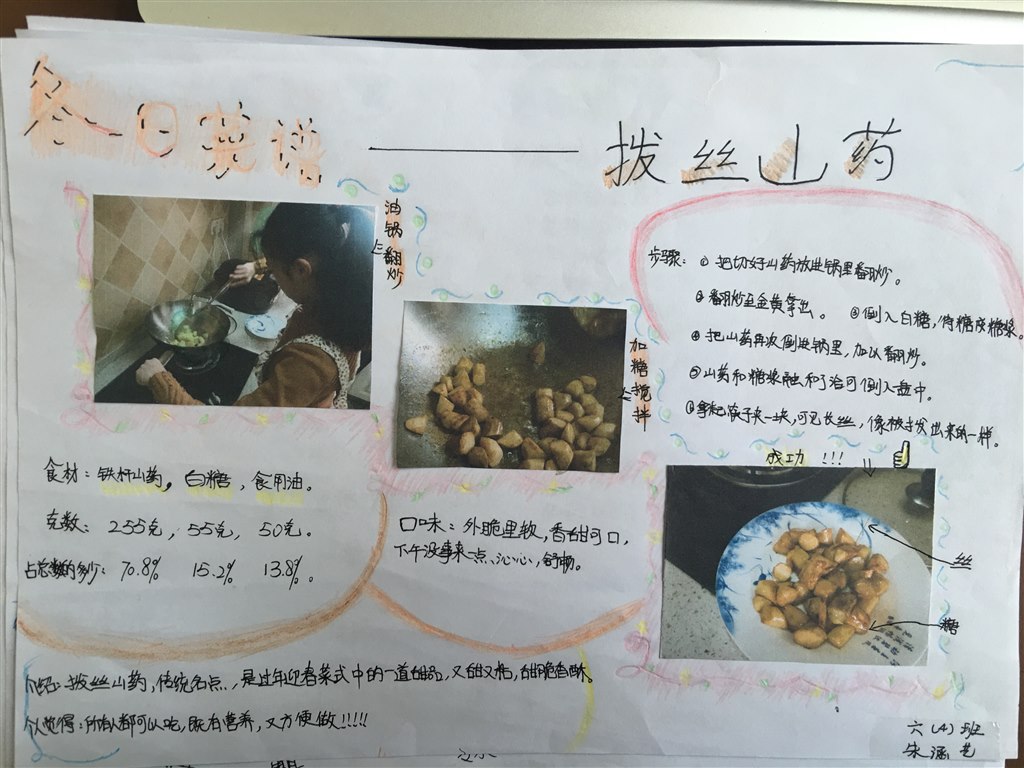 今日菜谱 —— 拔丝山药
油锅翻炒
加糖搅拌
步骤: ① 把切好山药放进锅里翻炒。
② 翻炒至金黄拿出。 ③ 倒入白糖,将糖成糖浆
④ 把山药再次倒进锅里,加以翻炒。
⑤ 山药和糖浆融和了治可倒入盘中。
⑥ 拿起筷子夹一块,可见长丝,像被拔出来的一样。
成功 !!!
丝
糖
食材: 铁杆山药, 白糖, 食用油。
克数: 255克, 55克, 50克。
占总数的多少: 70.8% 15.2% 13.8%。
口味: 外脆里软, 香甜可口,
下午没事来一点、沁心, 舒畅。
介绍: 拔丝山药, 传统名点, 是过年迎春菜式中的一道甜品, 又甜又粘, 甜脆香酥。
个人觉得: 所有人都可以吃, 既有营养, 又方便做!!!!!
六(4)班
朱涵艺